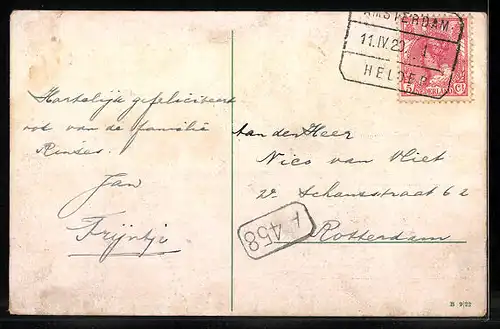 AMSTERDAM
11.IV.20. 1
HELDER
5 NEDERLAND Ct
Hartelijk gefeliciteerd
ook van de familie
Rinses.
Jan
Trijntje
Aan den Heer
Nico van Vliet
W. Schansstraat 62
Rotterdam
A 458
B 9/22